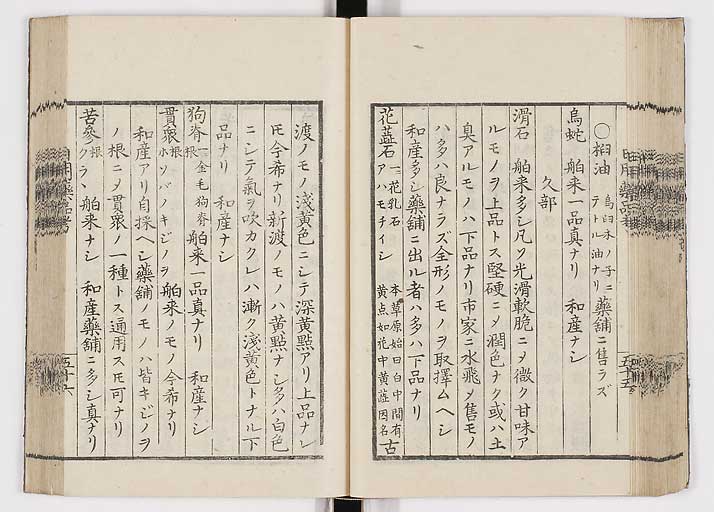 〇桕油 烏臼木ノ子ニテトル油ナリ 藥舗ニ售ラズ
烏蛇 舶来一品真ナリ 和産ナシ
久部
滑石 舶来多シ凡ソ光滑軟脆ニメ微ク甘味ア
ルモノヲ上品トス堅硬ニメ潤色ナク或ハ土
臭アルモノハ下品ナリ市家ニ水飛メ售モノ
ハ多ハ良ナラズ全形ノモノヲ取擇ムヘシ
和産多シ藥舗ニ出ル者ハ多ハ下品ナリ
花蕋石 一花乳石 アハモチイシ 本草原始曰白中間有黄点如花中黄蕋因名 古
渡ノモノ浅黄色ニシテ深黄點アリ上品ナレ
𪜈今希ナリ新渡ノモノハ黄點ナシ多ハ白色
ニシテ氣ヲ吹カクレハ漸ク浅黄色トナル下
品ナリ 和産ナシ
狗脊根 一金毛狗脊 舶来一品真ナリ 和産ナシ
貫衆根 ホソバノキジノヲ 舶来ノモノ今希ナリ
和産アリ自採ヘシ藥舗ノモノハ皆キジノヲ
ノ根ニメ貫衆ノ一種トス通用ス𪜈可ナリ
苦参根 クララ 舶来ナシ 和産藥舗ニ多シ真ナリ
五十五
五十六